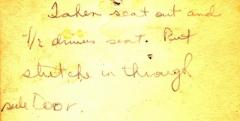 Taken seat out and
1/2 drivers seat. Put
stretche in through
side Door.